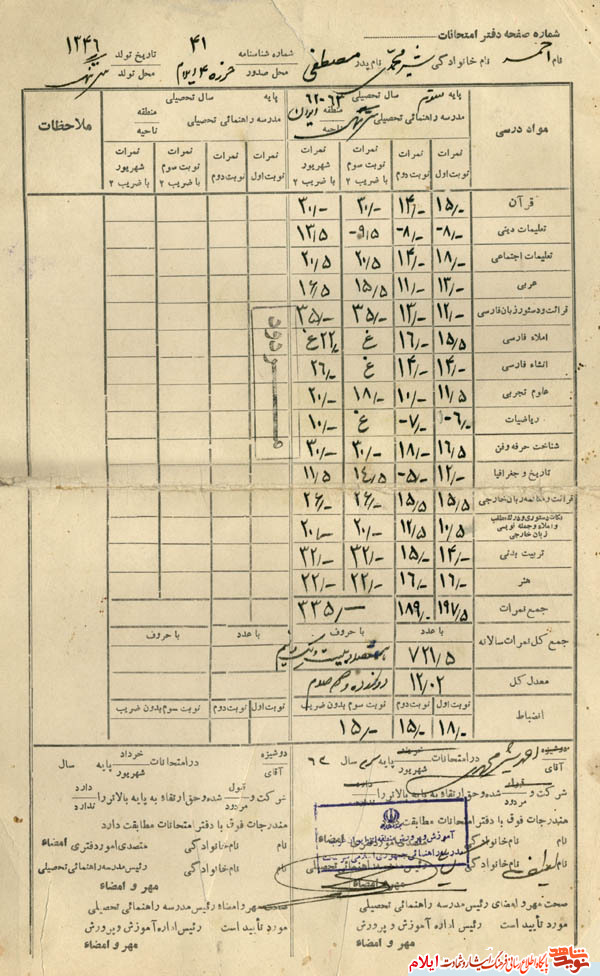 شماره صفحه دفتر امتحانات
نام احمد نام خانوادگی شیرمحمدی نام پدر مصطفی شماره شناسنامه ۴۱ محل صدور تاریخ تولد ۱۳۴۶ محل تولد
مواد درسی پایه سوم سال تحصیلی ۶۳-۶۲ پایه سال تحصیلی ملاحظات
مدرسه راهنمائی تحصیلی منطقه ناحیه مدرسه راهنمائی تحصیلی منطقه ناحیه
نمرات نوبت اول نمرات نوبت دوم نمرات نوبت سوم با ضریب ۲ نمرات شهریور با ضریب ۲ نمرات نوبت اول نمرات نوبت دوم نمرات نوبت سوم با ضریب ۲ نمرات شهریور با ضریب ۲
قرآن ۱۵/- ۱۴/- ۳۰/- ۳۰/-
تعلیمات دینی ۸/- ۸/- ۹/۵ ۱۳/۵
تعلیمات اجتماعی ۱۸/- ۱۴/- ۲۰/۵ ۲۰/۵
عربی ۱۳/- ۱۱/- ۱۵/۵ ۱۶/۵
قرائت و دستور زبان فارسی ۱۲/- ۱۳/- ۳۵/- ۳۵/-
املاء فارسی ۱۵/۵ ۱۶/- غ ۲۲/- غ
انشاء فارسی ۱۴/- ۱۴/- غ ۲۶/-
علوم تجربی ۱۱/۵ ۱۰/- ۱۸/- ۲۰/-
ریاضیات ۶/- ۷/- غ ۱۰/-
شناخت حرفه و فن ۱۶/۵ ۱۸/- ۳۰/- ۳۰/-
تاریخ و جغرافیا ۱۲/- ۵/- ۱۴/۵ ۱۱/۵
قرائت و مکالمه زبان خارجی ۱۵/۵ ۱۵/۵ ۲۶/- ۲۶/-
نکات دستوری و درک مطلب و املاء و جمله نویسی زبان خارجی ۱۰/۵ ۱۲/۵ ۲۰/- ۲۰/-
تربیت بدنی ۱۴/- ۱۵/- ۳۲/- ۳۲/-
هنر ۱۶/- ۱۶/- ۲۲/- ۲۲/-
مردود
جمع نمرات ۱۹۷/۵ ۱۸۹/- ۳۳۵/-
جمع کل نمرات سالانه با عدد با حروف با عدد با حروف
۷۲۱/۵ هفتصد و بیست و یک و نیم
معدل کل ۱۲/۰۲ دوازده و دو صدم
انضباط نوبت اول نوبت دوم نوبت سوم بدون ضریب نوبت اول نوبت دوم نوبت سوم بدون ضریب
۱۸/- ۱۵/- ۱۵/-
دوشیزه آقای احمد شیرمحمدی در امتحانات خرداد شهریور پایه سوم سال ۶۲
شرکت و قبول مردود شده و حق ارتقاء به پایه بالاتر را دارد ندارد
مندرجات فوق با دفتر امتحانات مطابقت
نام نام خانوادگی متصدی امور دفتری امضاء
آموزش و پرورش
مدرسه راهنمائی
نام نام خانوادگی رئیس مدرسه راهنمائی تحصیلی
مهر و امضاء
صحت مهر و امضای رئیس مدرسه راهنمائی تحصیلی
مورد تأیید است رئیس اداره آموزش و پرورش
مهر و امضاء
دوشیزه آقای در امتحانات خرداد شهریور پایه سال
شرکت و قبول مردود شده و حق ارتقاء به پایه بالاتر را دارد ندارد
مندرجات فوق با دفتر امتحانات مطابقت دارد
نام نام خانوادگی متصدی امور دفتری امضاء
نام نام خانوادگی رئیس مدرسه راهنمائی تحصیلی
مهر و امضاء
صحت مهر و امضاء رئیس مدرسه راهنمائی تحصیلی
مورد تأیید است رئیس اداره آموزش و پرورش
مهر و امضاء
نوید شاهد پایگاه اطلاع رسانی فرهنگ ایثار و شهادت ایلام